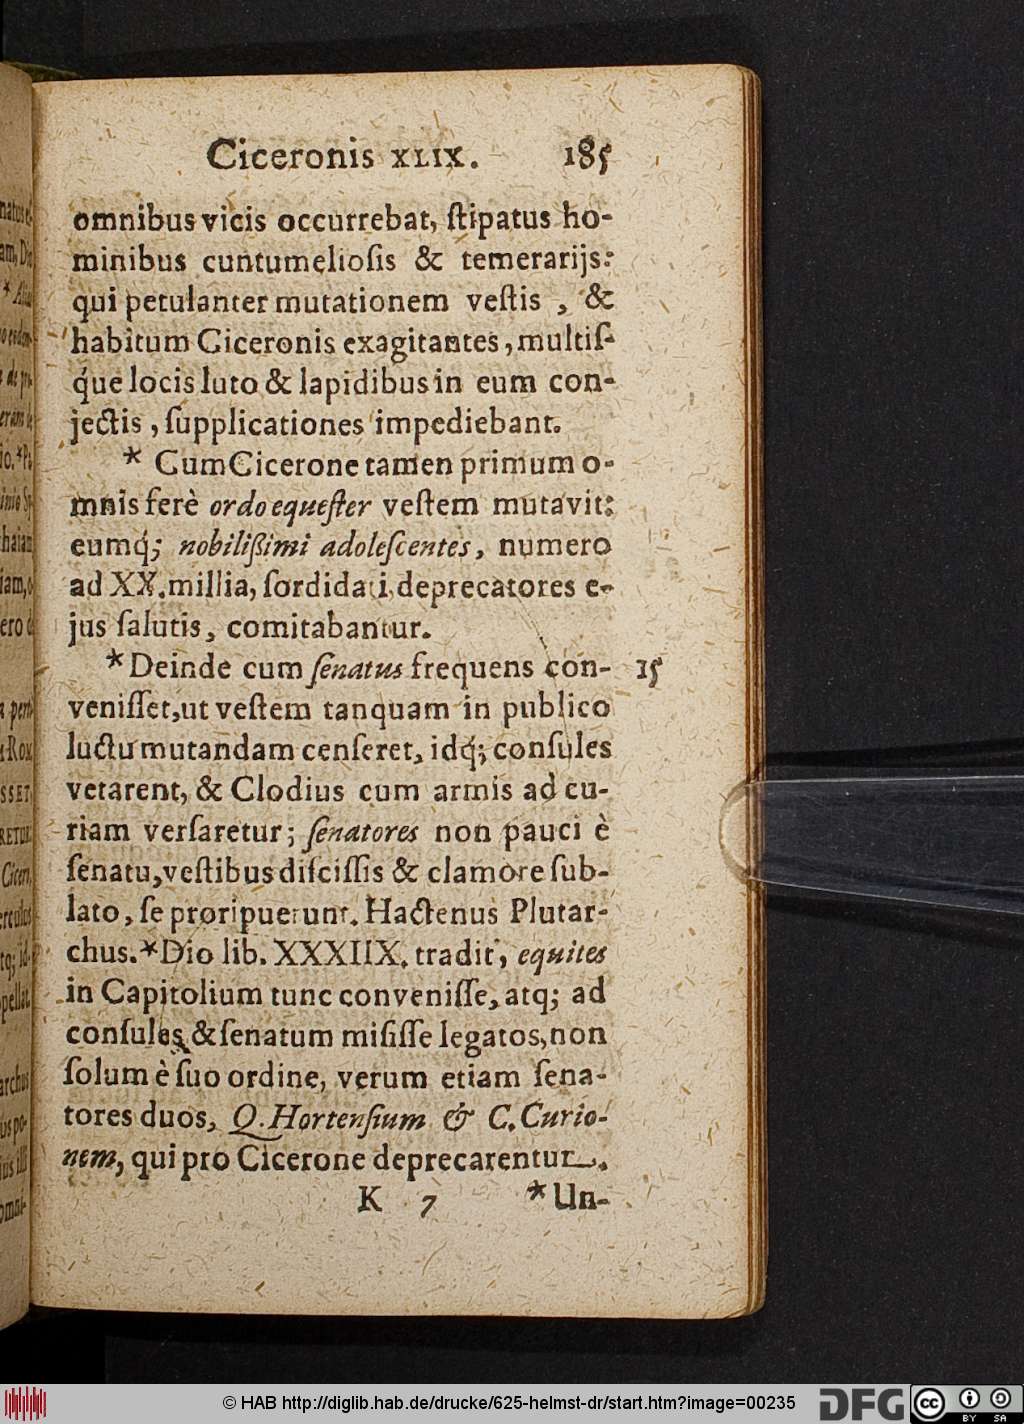 Ciceronis XLIX. 185
omnibus vicis occurrebat, ſtipatus ho-
minibus cuntumelioſis & temerarijs:
qui petulanter mutationem veſtis , &
habitum Ciceronis exagitantes, multiſ-
q́ue locis luto & lapidibus in eum con-
jectis , ſupplicationes impediebant.
* Cum Cicerone tamen primum o-
mnis ferè ordo equeſter veſtem mutavit:
eumq́; nobilißimi adoleſcentes, numero
ad XX. millia, ſordidati, deprecatores e-
jus ſalutis, comitabantur.
* Deinde cum ſenatus frequens con- 15
veniſſet, ut veſtem tanquam in publico
luctu mutandam cenſeret, idq́; conſules
vetarent, & Clodius cum armis ad cu-
riam verſaretur; ſenatores non pauci è
ſenatu, veſtibus diſciſſis & clamore ſub-
lato, ſe proripuerunt. Hactenus Plutar-
chus. * Dio lib. XXXIIX. tradit, equites
in Capitolium tunc conveniſſe, atq; ad
conſules & ſenatum miſiſſe legatos, non
ſolum è ſuo ordine, verum etiam ſena-
tores duos, Q. Hortenſium & C. Curio-
nem, qui pro Cicerone deprecarentur.
K 7 * Un-
© HAB http://diglib.hab.de/drucke/625-helmst-dr/start.htm?image=00235
DFG
cc BY SA